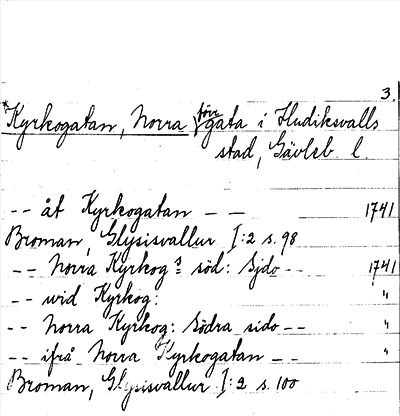 3.
*Kyrkogatan, Norra, förr gata i Hudiksvalls
stad, Gävleb. l.
-- åt Kyrkogatan -- 1741
Broman, Glysisvallur I:2 s. 98
-- Norra Kyrkog:s söd: Sjdo -- 1741
-- wid Kyrkog: "
-- Norra Kyrkog: Södra sido -- "
-- ifrå Norra Kyrkogatan -- "
Broman, Glysisvallur I:2 s. 100